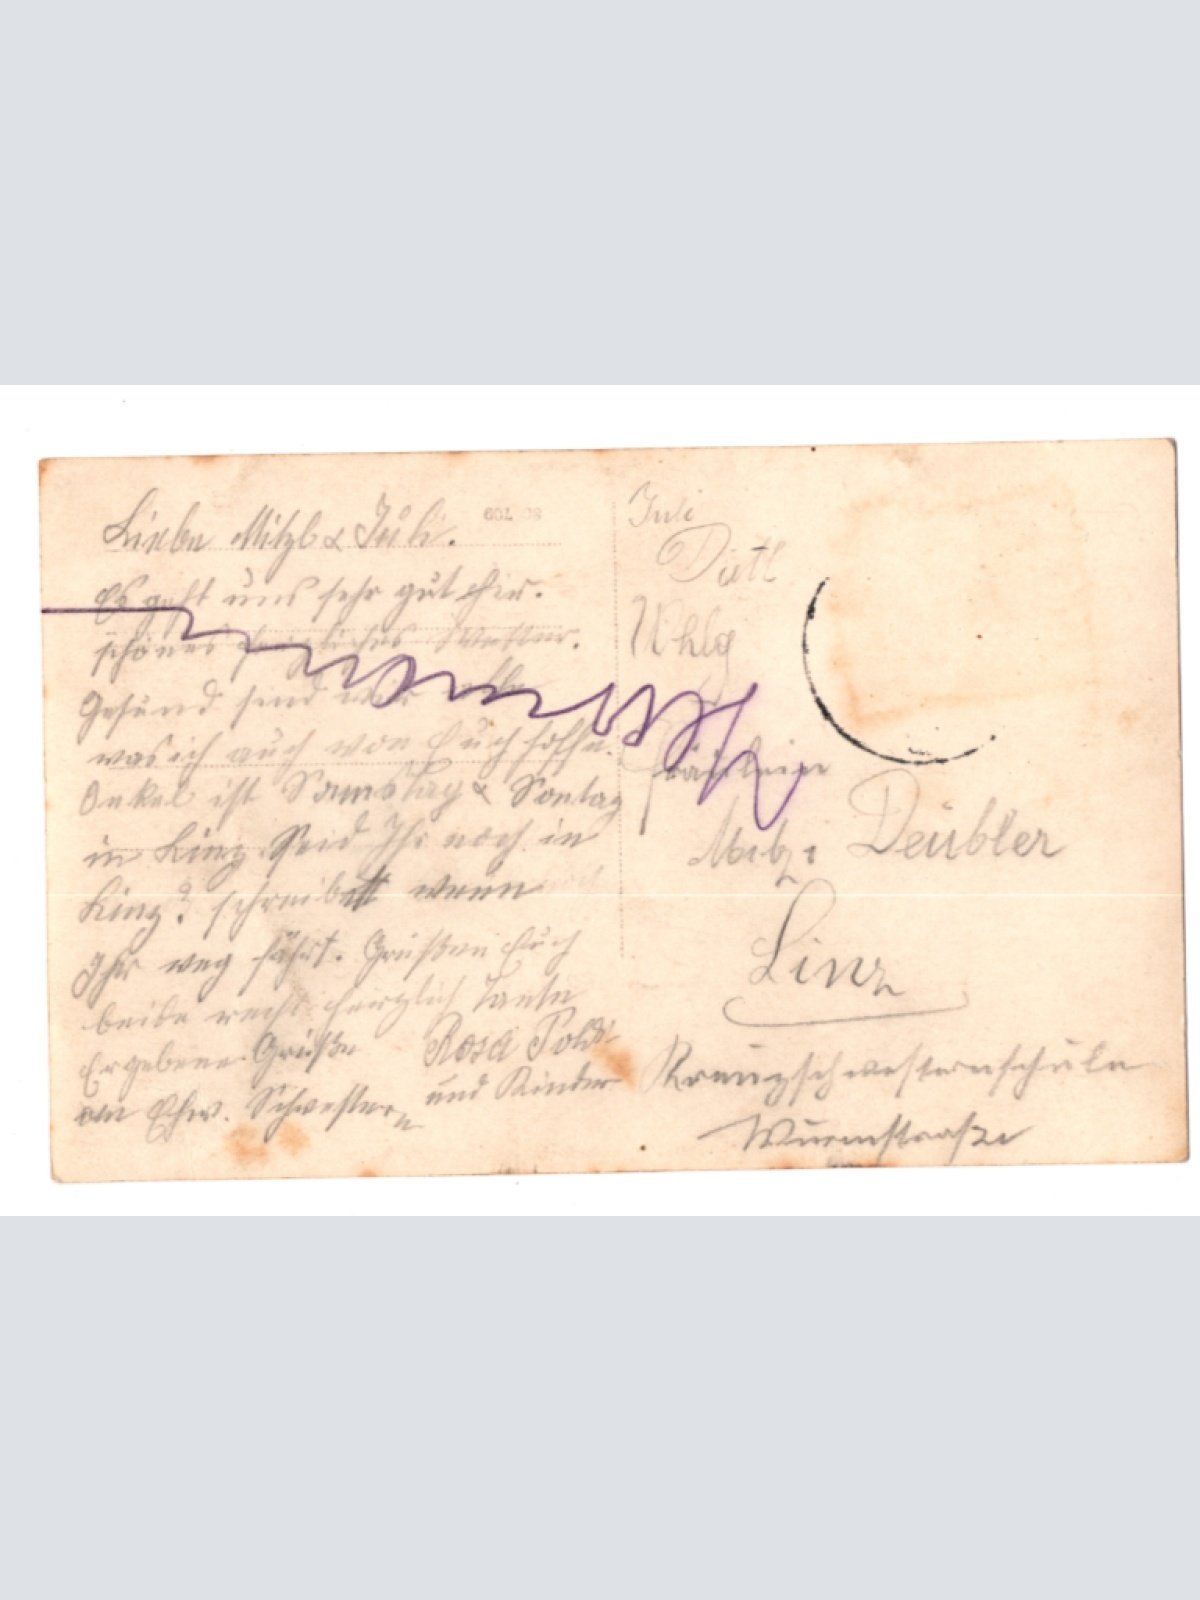 Liebe Mitzl & Juli.
Es geht uns sehr gut hier.
schönes herrliches Wetter.
Gesund sind wir alle
was ich auch von Euch hoffe.
Onkel ist Samstag & Sontag
in Linz. Seid Ihr noch in
Linz? schreibet wenn
Ihr weg fährt. Grüßen Euch
beide recht herzlich Tante
Rosa Poldi
und Kinder
Ergebene Grüße
an Ehrw. Schwestern
Juli
Uhlg
Fräulein
Mitzi Deubler
Linz
Kreuzschwesternschule
Wurmstraße